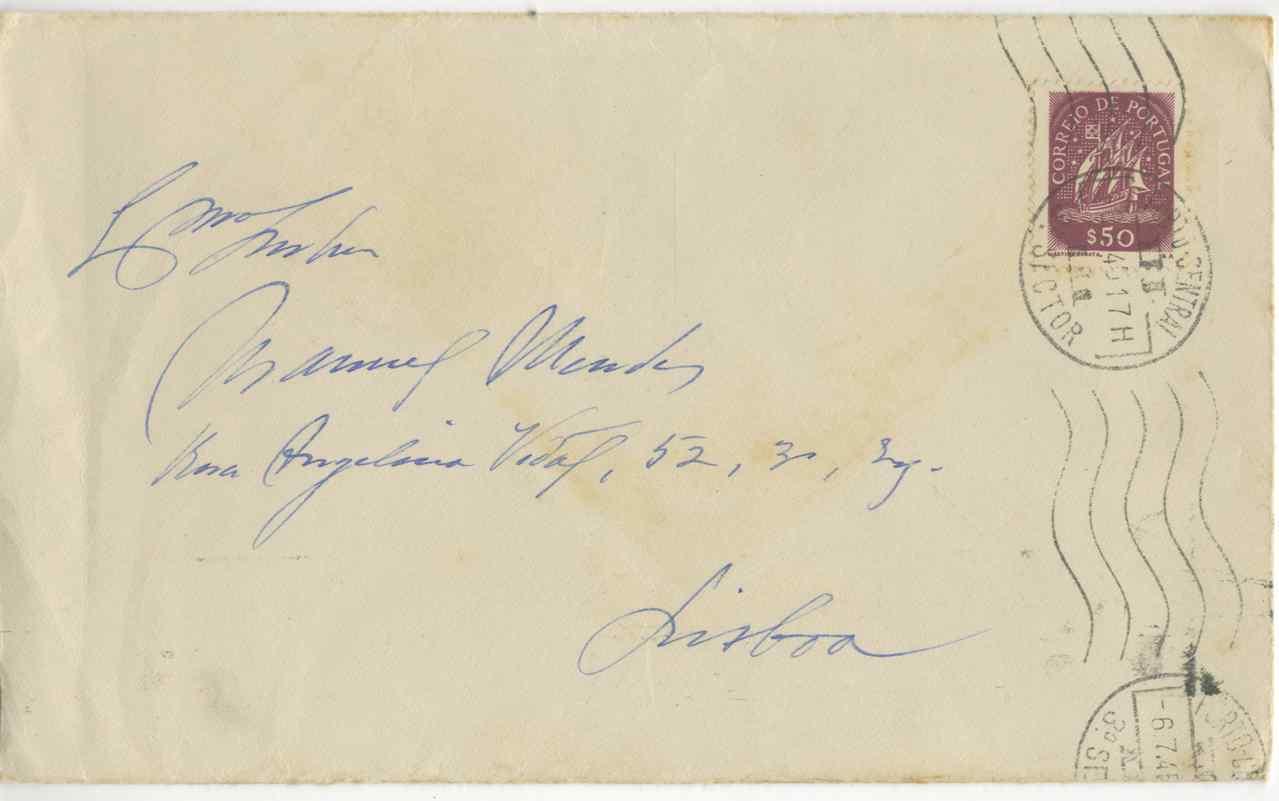 CORREIO DE PORTUGAL
$50
Exmo Senhor
Manuel Mendes
Rua Angelina Vidal, 52, 3º, Esq.
Lisboa
SECTOR
45 17 H
-6.7.45
3º SE